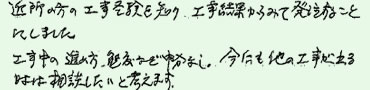 近所の方の工事経験を知り、工事結果からみて発注すること
にしました
工事中の進め方、態度など申分なし。今后も他の工事が出る
時は相談したいと考えます。